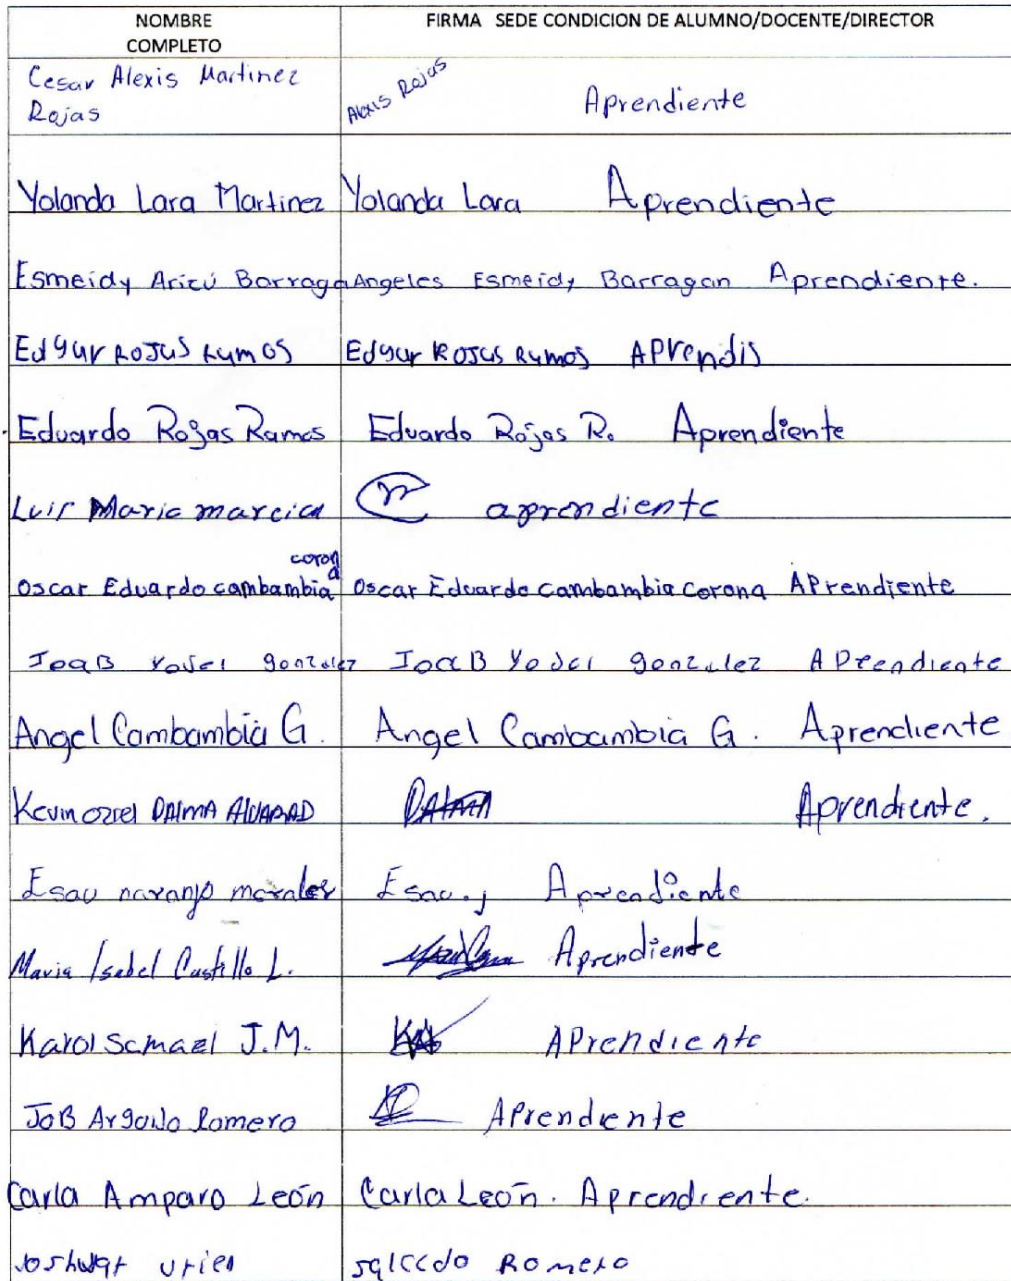 NOMBRE COMPLETO
FIRMA SEDE CONDICION DE ALUMNO/DOCENTE/DIRECTOR
Cesar Alexis Martinez Rojas Alexis Rojas Aprendiente
Yolanda Lara Martinez Yolanda Lara Aprendiente
Esmeidy Aricú Barraga Angeles Esmeidy Barragan Aprendiente.
Edgar Rojas Ramos Edgar Rojas Ramos Aprendis
Eduardo Rojas Ramos Eduardo Rojas R. Aprendiente
Luis Maria aprendiente
Oscar Eduardo cambambia corona Oscar Eduardo Cambambia Corona APrendiente
JoaB gonzalez JoaB gonzalez APrendiente
Angel Cambambia G. Angel Cambambia G. Aprendiente
Kevin PALMA Aprendiente.
Esau naranjo morales Esau. Aprendiente
Maria Isabel Castillo L. Aprendiente
Karol Samael J.M. APrendiente
JoB Romero APrendiente
Carla Amparo León Carla León. Aprendiente.
uriel salcedo Romero